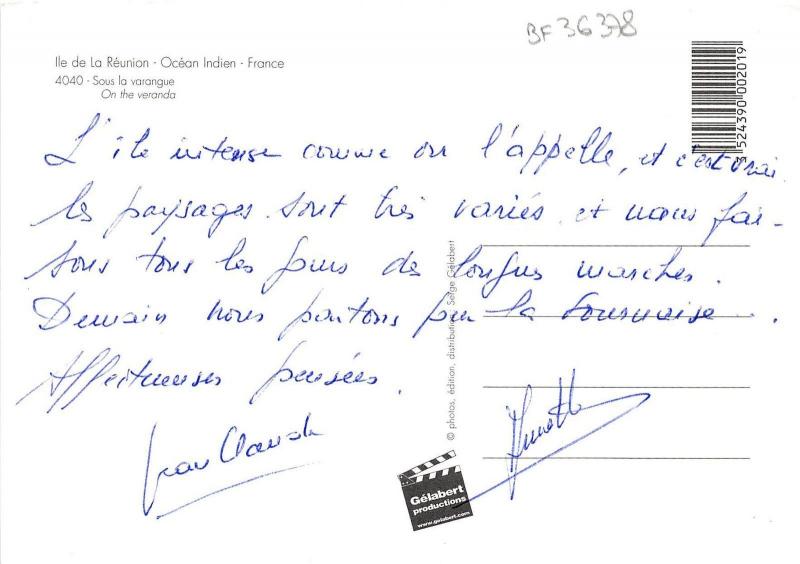 BF36378
Ile de La Réunion - Océan Indien - France
4040 - Sous la varangue
On the veranda
3 524390 002019
L'île intense comme on l'appelle, et c'est vrai.
les paysages sont très variés et nous fai-
sons tous les jours des longues marches.
Demain nous partons pour la Fournaise...
Affectueuses pensées.
Jean Claude
© photos, édition, distribution : Serge Gélabert
Gélabert
productions
www.gelabert.com